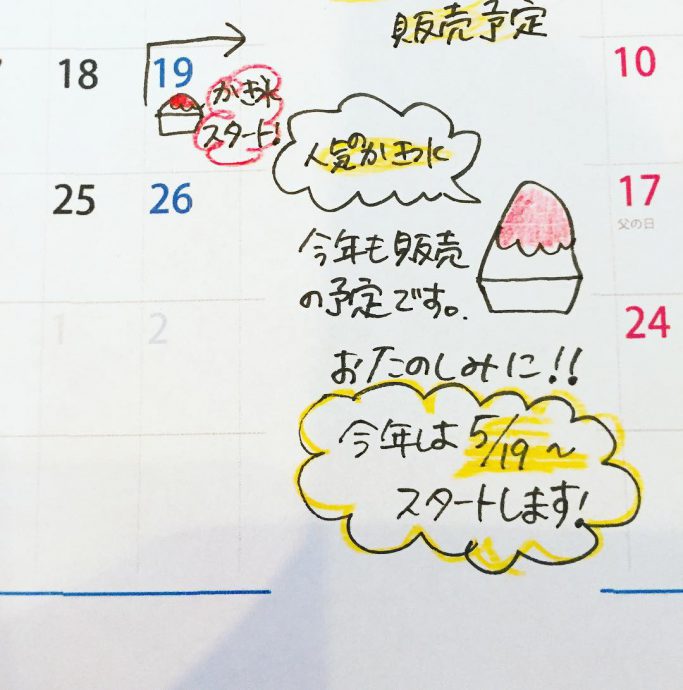 販売予定
18 19
かき氷
スタート!
25 26
1 2
人気のかき氷
今年も販売
の予定です。
おたのしみに!!
今年は5/19~
スタートします!
10
17
父の日
24